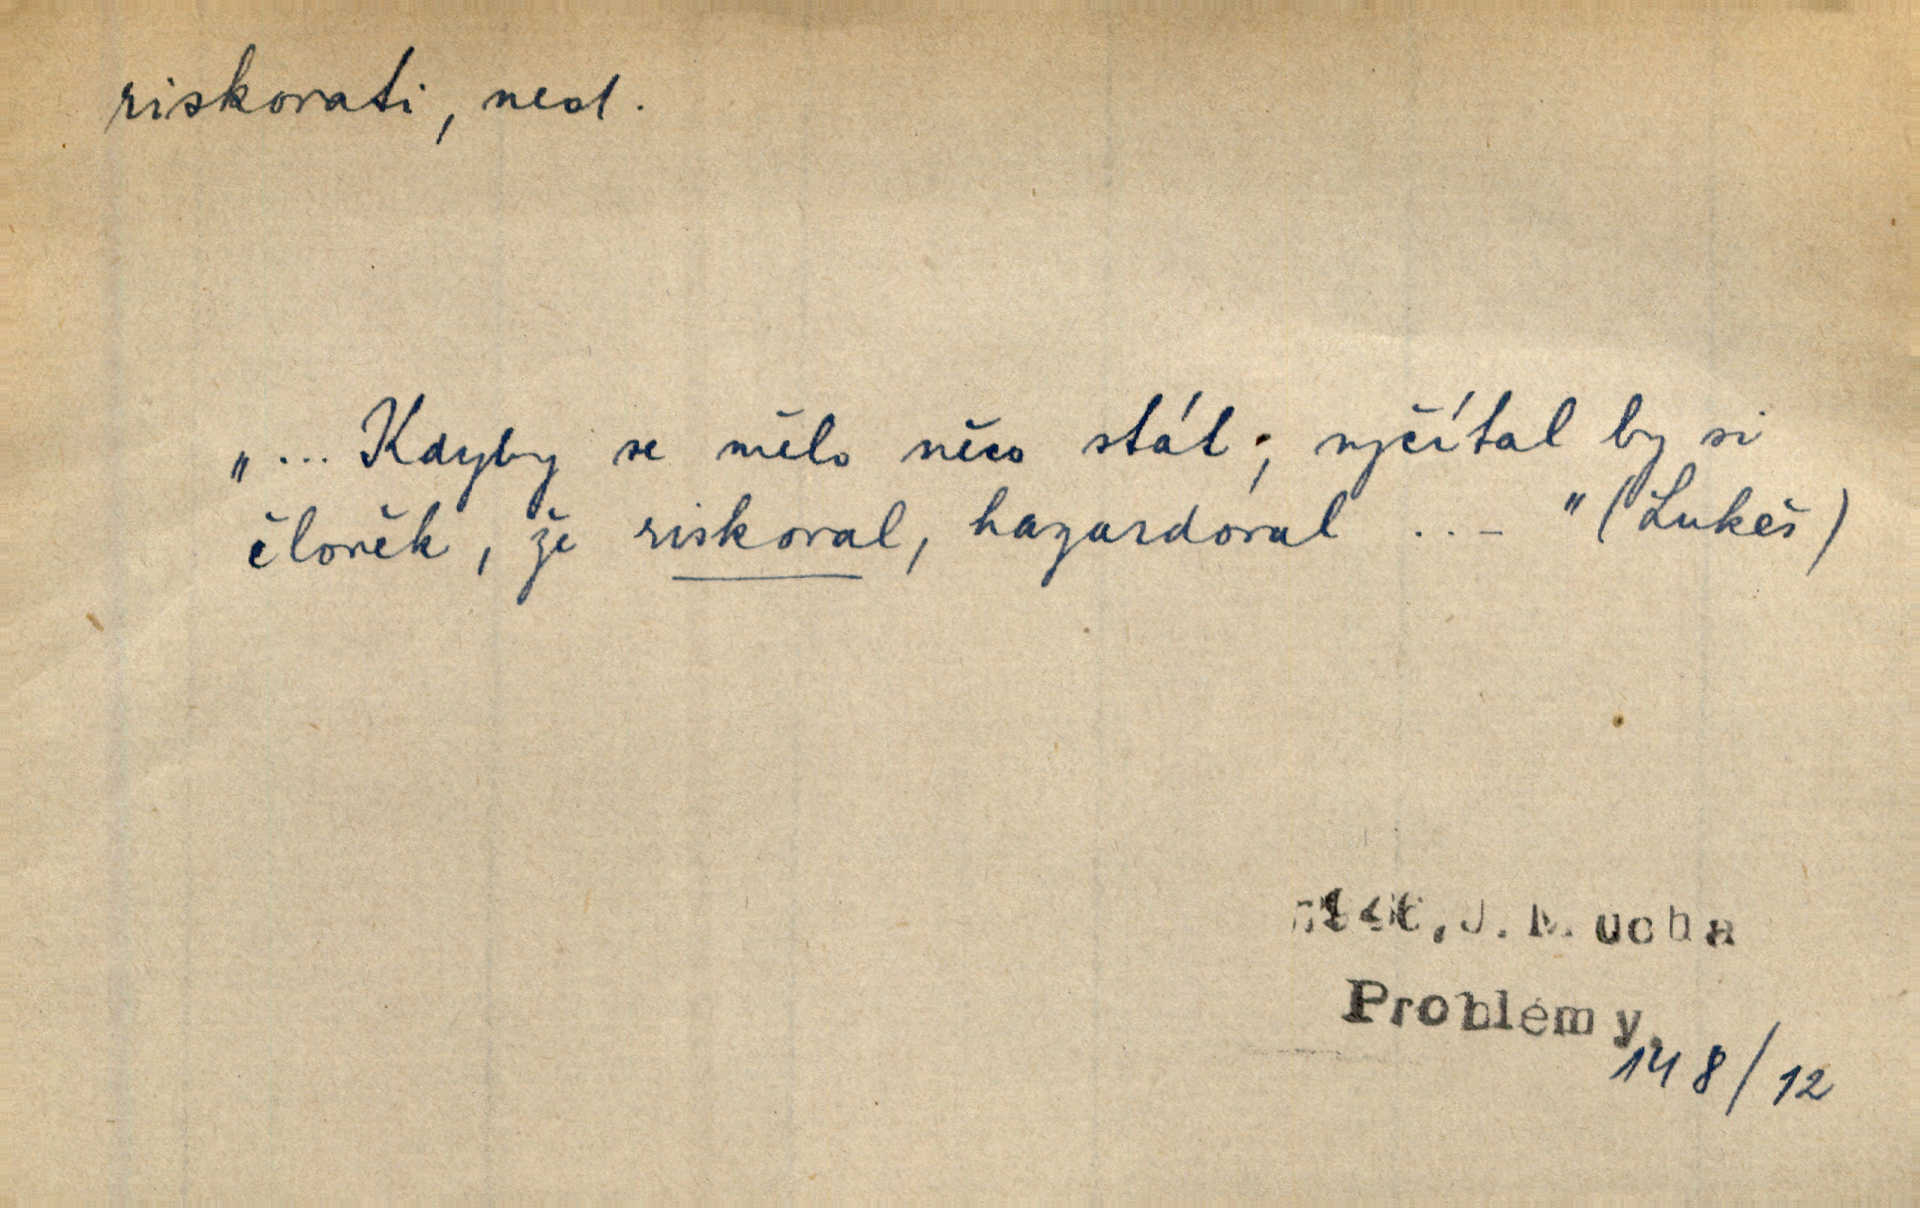 riskovati, ned.
„... Kdyby se mělo něco stát, vyčítal by si
člověk, že riskoval, hazardoval ... " (Lukeš)
J. Mucha
Problémy.
148/12